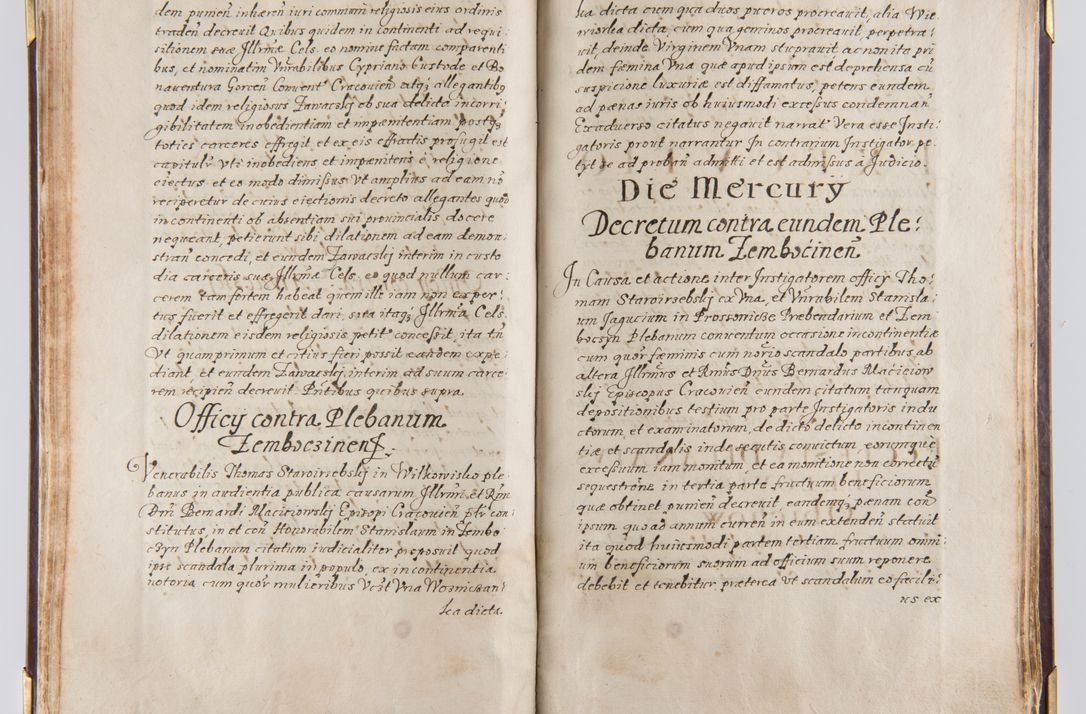 dem pumeñ inhæreñ iuri communi religiosis eius ordinis
tradeñ decreuit Quibus quidem in continenti ad requi:
sitionem suæ Illrmæ Cels. eo nomine factam comparenti
bus, et nominatim Vñrabilibus Cypriano Custode et Bo
nauentura Gorceñ Conuent' Cracouien̄ alijs allegantibꝰ
quod idem religiosus Zawaczkj ob sua delicta incorri:
gibilitatem inobedientiam et impænitentiam postqꝫ
toties carceres effregit et ex eis effractis profugit est
capituli vti inobediens et impænitens è religione
eiectus et eo modo dimissus Vt amplius ad eam nō
reciperetur de cuius eiectionis decreto allegantes quod
in continenti ob absentiam sui prouincialis docere
nequeant, petierunt sibi dilationem ad eam demon:
strañ concedi, et eundem Zawaczkj interim in custo
dia carceris suæ Illrmæ Cels. eo quod nullum car:
cerem tam fortem habeat quem ille iam non exper:
tus fuerit et effregerit dari, sata itaqꝫ Illrmā Cels
dilationem eisdem religiosis petit' concessit, ita tñ
Vt quamprimum et citius fieri possit eandem expe:
diant et eundem Zawaczkj interim ad suum carce:
rem recipieñ decreuit. Pñtibus quibus supra.
Officy contra Plebanum
Zemboczinenß.
Venerabilis Thomas Staroirzebskj in Wilkowisko ple:
banus in audientia publica causarum Illrmi et Rmi
Dñi Bernardi Macieiowskj Episcopi Cracouieñ ptr con
stitutus, in et coñ Honorabilem Stanislaum in Zembo
czyn Plebanum citatum iudicialiter proposuit quod
ipse scandala plurima in populo, ex incontinentia
notoria cum quor mulieribus Vczt Vna Woznicżan:
ka dicta.
ka dicta cum qua duos pueros procreauit, alia Wie
wiorka dicta, cum qua geminos procreauit, perpetra:
uit, deinde Virginem Vnam stuprauit ac nouita pri
dem fæmina Vna quæ apud ipsum est deprehensa cū
suspicione luxuriæ est diffamatus, petens eundem
ad pænas iuris ob huiusmodi excessus condemnañ
Exaduerso citatus negauit narrat' Vera esse Insti:
gatoris prout narrantur In contrarium Instigator pe:
tyt se ad probañ admitti et est admissus à Iudicio.
Die Mercury
Decretum contra eundem Ple:
banum Zembocineñ
In Causa et actione inter Instigatorem officy Tho:
mam Staroirzebskj ex Vna, et Vñrabilem Stanisla:
um Jagucium in Prossowicze Præbendarium et Zem
boczyn Plebanum conuentum occasione incontinentiæ
cum quor fæminis cum norio scandalo partibus ab
altera Illrmus et Rmus Dñus Bernardus Macieiow
skj Episcopus Cracouieñ eundem citatum tanquam
depositionibus testium pro parte Instigatoris indu
ctorum, et examinatorum, de dicto delicto incontinen
tiæ et scandalis inde secutis conuictum, eorumque
excessuum iam monitum, et ea monitione non correctū
sequestrone in tertia parte fructuum beneficiorum
quæ obtinet pumeñ decreuit eandemqꝫ pænam coñ
ipsum quo ad annum curreñ in eum extendeñ statuit
ita quod huiusmodi partem tertiam fructuum omni
um beneficiorum suorum ad officium suum reponere
debebit et tenebitur, præterea Vt scandalum eo facili:
us ex